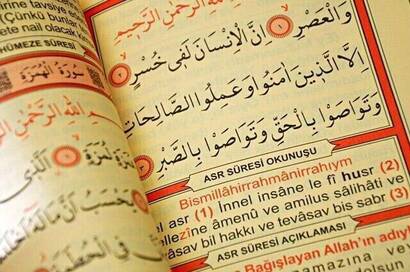 irine tavsiye eden
(Çünkü bunlar
nail olacak
HÜMEZE SÛRESİ
سورة الهمزة
الله الرحمن الر
الذى
يحسب ان ماله
الله الرحمن الرحيم
وَالْعَصْرِ ١ اِنَّ الْاِنْسَانَ لَفٖى خُسْرٍ ٢
اِلَّا الَّذٖينَ اٰمَنُوا وَعَمِلُوا الصَّالِحَاتِ
وَتَوَاصَوْا بِالْحَقِّ وَتَوَاصَوْا بِالصَّبْرِ ٣
ASR SÛRESİ OKUNUŞU
Bismillâhirrahmânirrahıym
el asr (1) İnnel insâne le fî husr (2)
ellezîne âmenû ve amilus sâlihâti ve
vâsav bil hakkı ve tevâsav bis sabr (3)
ASR SÛRESİ AÇIKLAMASI
Bağışlayan Allah'ın adıyl